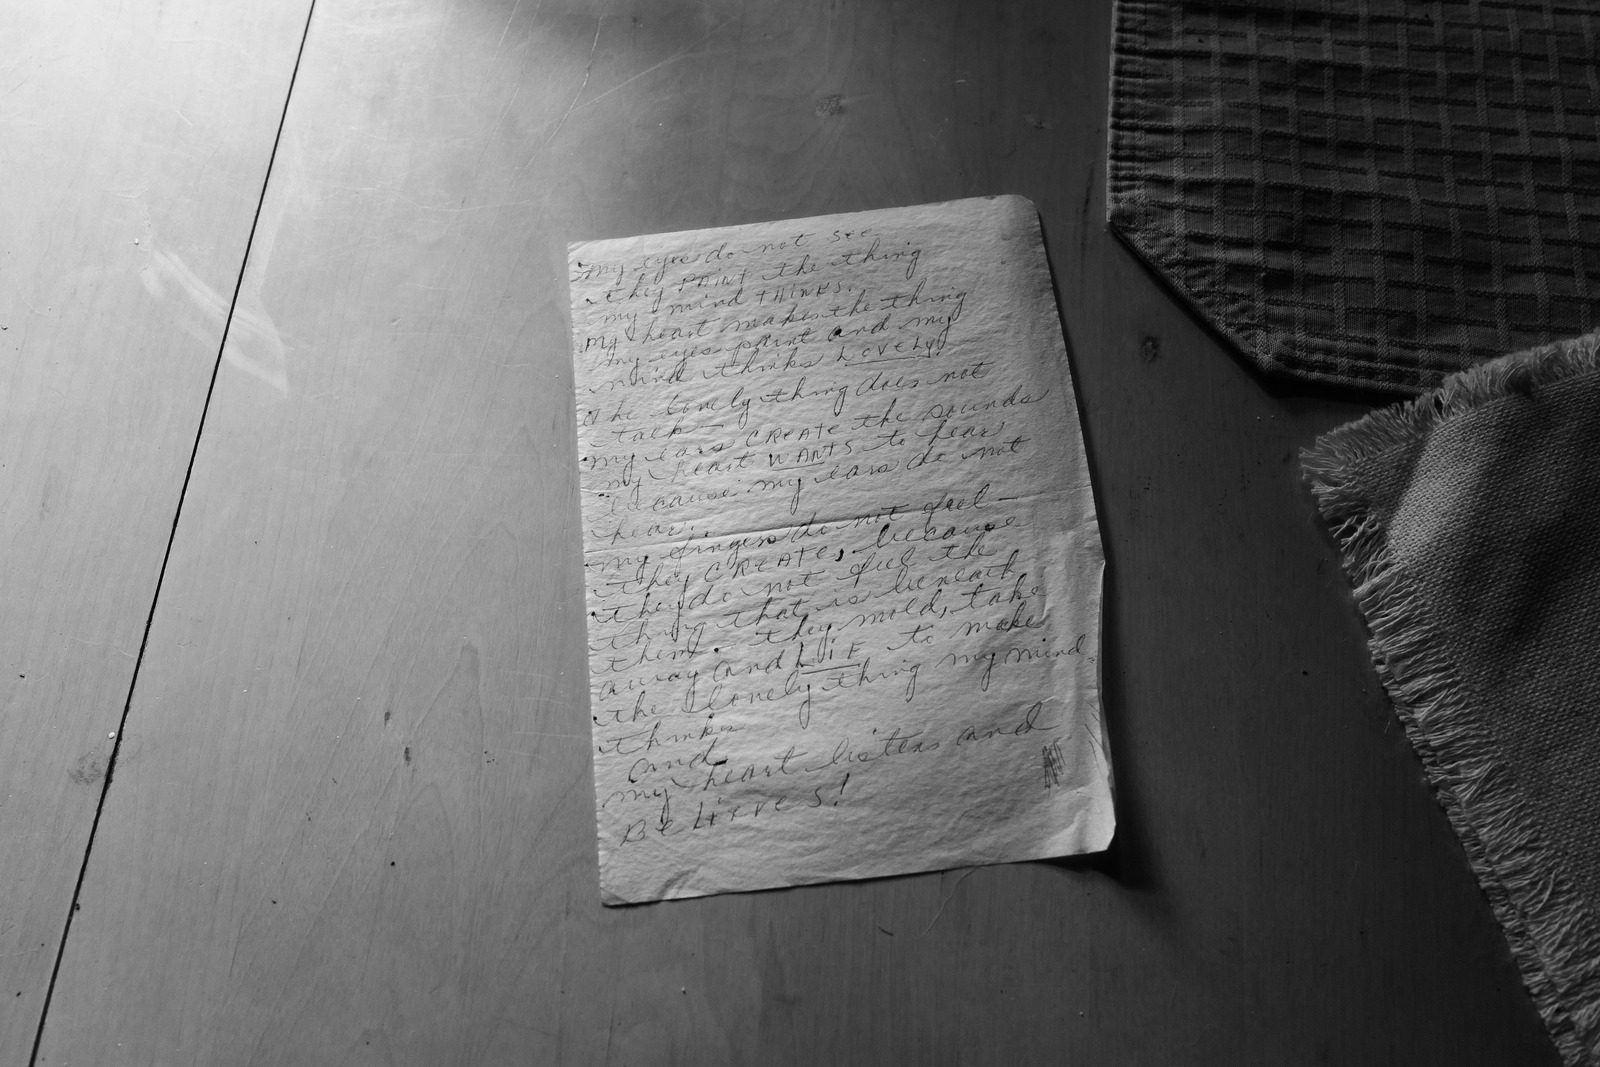 my eyes do not see
they PAINT the thing
my mind THINKS.
My heart makes the thing
my eyes paint and my
mind thinks LOVELY!
The lovely thing does not
talk —
my ears CREATE the sounds
my heart WANTS to hear
because my ears do not
hear.
my fingers do not feel —
they CREATE, because
they do not feel the
thing that is beneath
them. they mold, take
away and LIE to make
the lovely thing my mind
thinks
and
my heart listens and
BeLieveS!